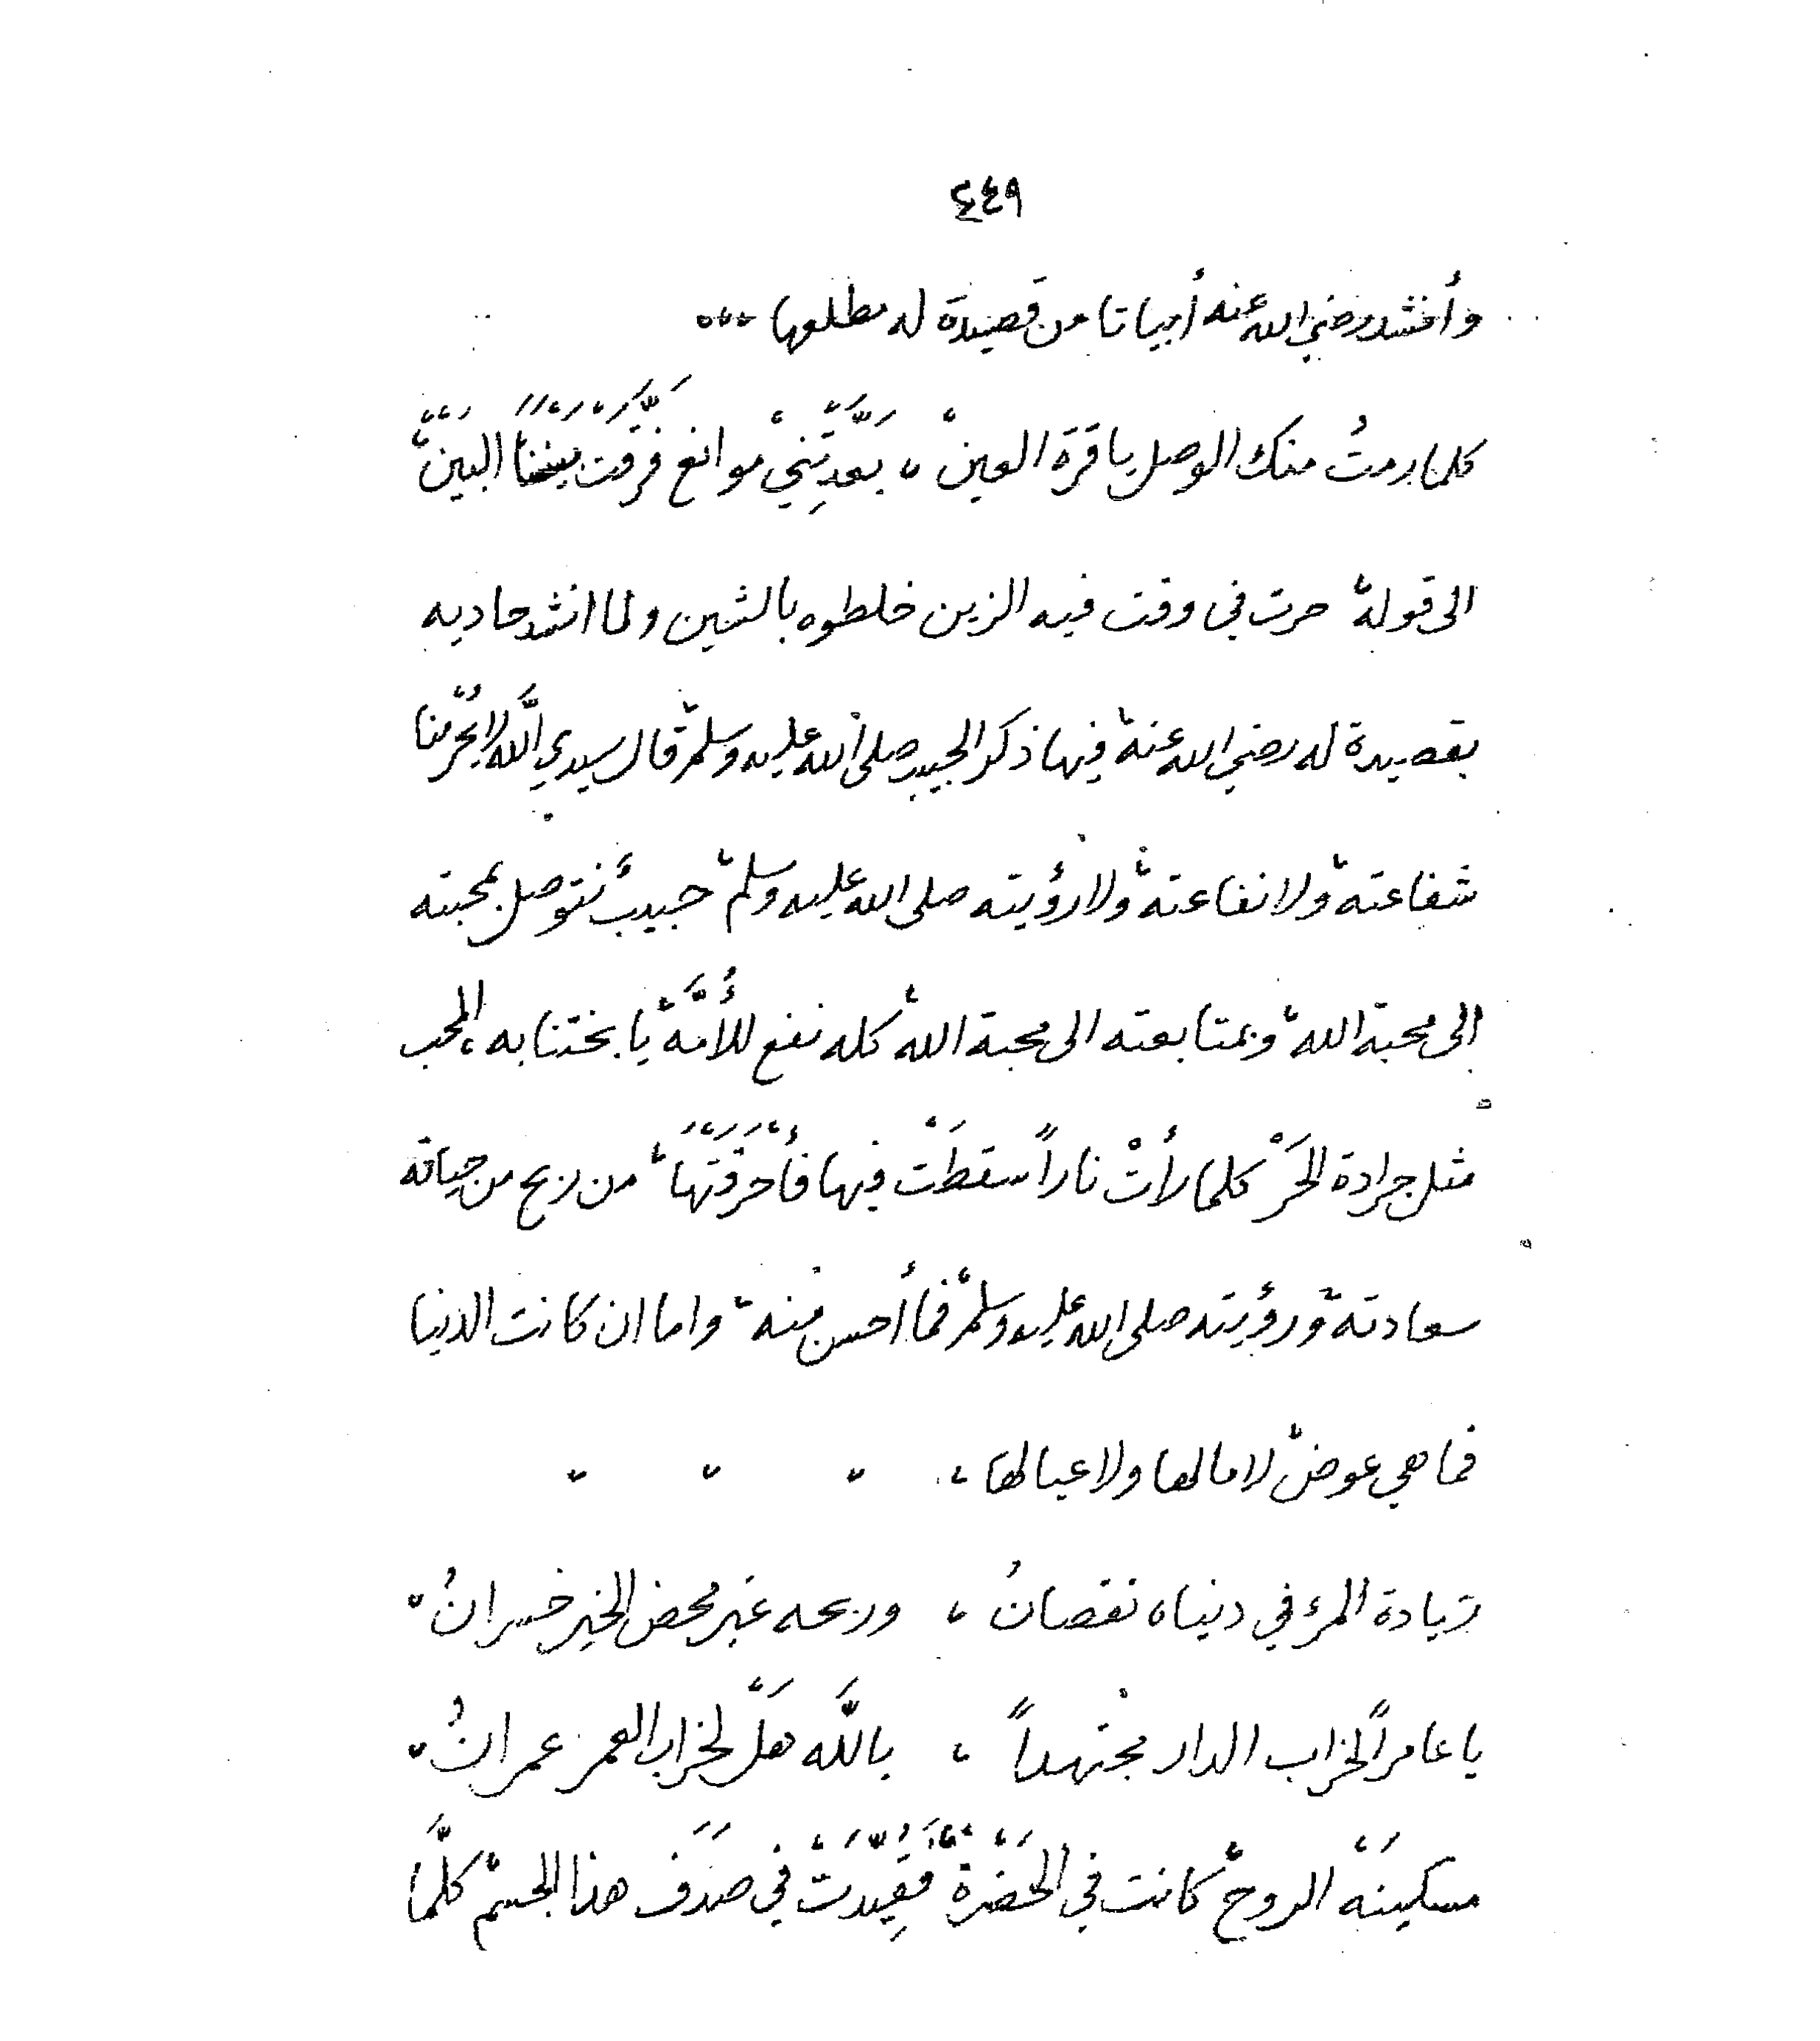 ٤٤٩
وأنشد رضي الله عنه أبياتا من قصيدة له مطلعها ...
كلما رمتُ منك الوصل يا قرة العينْ ، بَعَّدِتْنيْ موانع فَرَّقَتْ بَيْنَناً البَيْنْ ،
الى قوله حرت في وقت فيه الزين خلطوه بالشين ولما انشد حاديه
بقصيدة له رضي الله عنه فيها ذكر الحبيب صلى الله عليه وسلم قال سيدي اللَّه لا يُحْرِمنا
شفاعته ولا نفاعته ولا رؤيته صلى الله عليه وسلم حبيب نتوصل بمحبته
الى محبة الله وبمتابعته الى محبة الله كله نفع للأُمَّه يا بختنا به ، المحب
مثل جرادة الحَرْ كلما رأتْ ناراً سقطَتْ فيها فأَحْرَقَتْهَا ، من ربح من حياته
سعادته ورؤيته صلى الله عليه وسلم فما أحسن منه ، واما ان كانت الدنيا
فما هي عوضْ لا مالها ولا عيالها ،
زيادة المرء في دنياه نقصانُ ، وربحه غير محض الخير خسرانُ ،
يا عامراً لخراب الدار مجْتهداً ، باللَّه هَلْ لخراب العمر عمرانُ ،
مسكينَهْ الروحْ كانت في الحَضْرَةْ فَقُيِّدَتْ في صَدَف هذا الجسمْ كلَّما